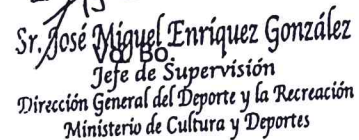 Sr. José Miguel Enríquez González
Vo. Bo.
Jefe de Supervisión
Dirección General del Deporte y la Recreación
Ministerio de Cultura y Deportes